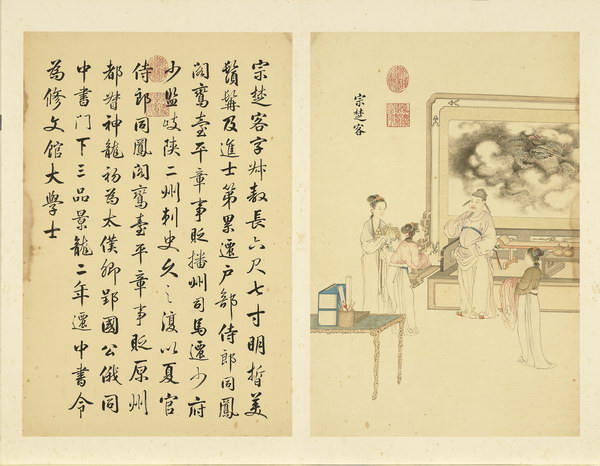 宗楚客字叔敖長六尺七寸明皙美
鬚髯及進士第累遷户部侍郎同鳳
閣鸞臺平章事貶播州司馬遷少府
少監歧陝二州刺史久之復以夏官
侍郎同鳳閣鸞臺平章事貶原州
都督神龍初為太僕卿郢國公俄同
中書門下三品景龍二年遷中書令
為修文館大學士
宗楚客